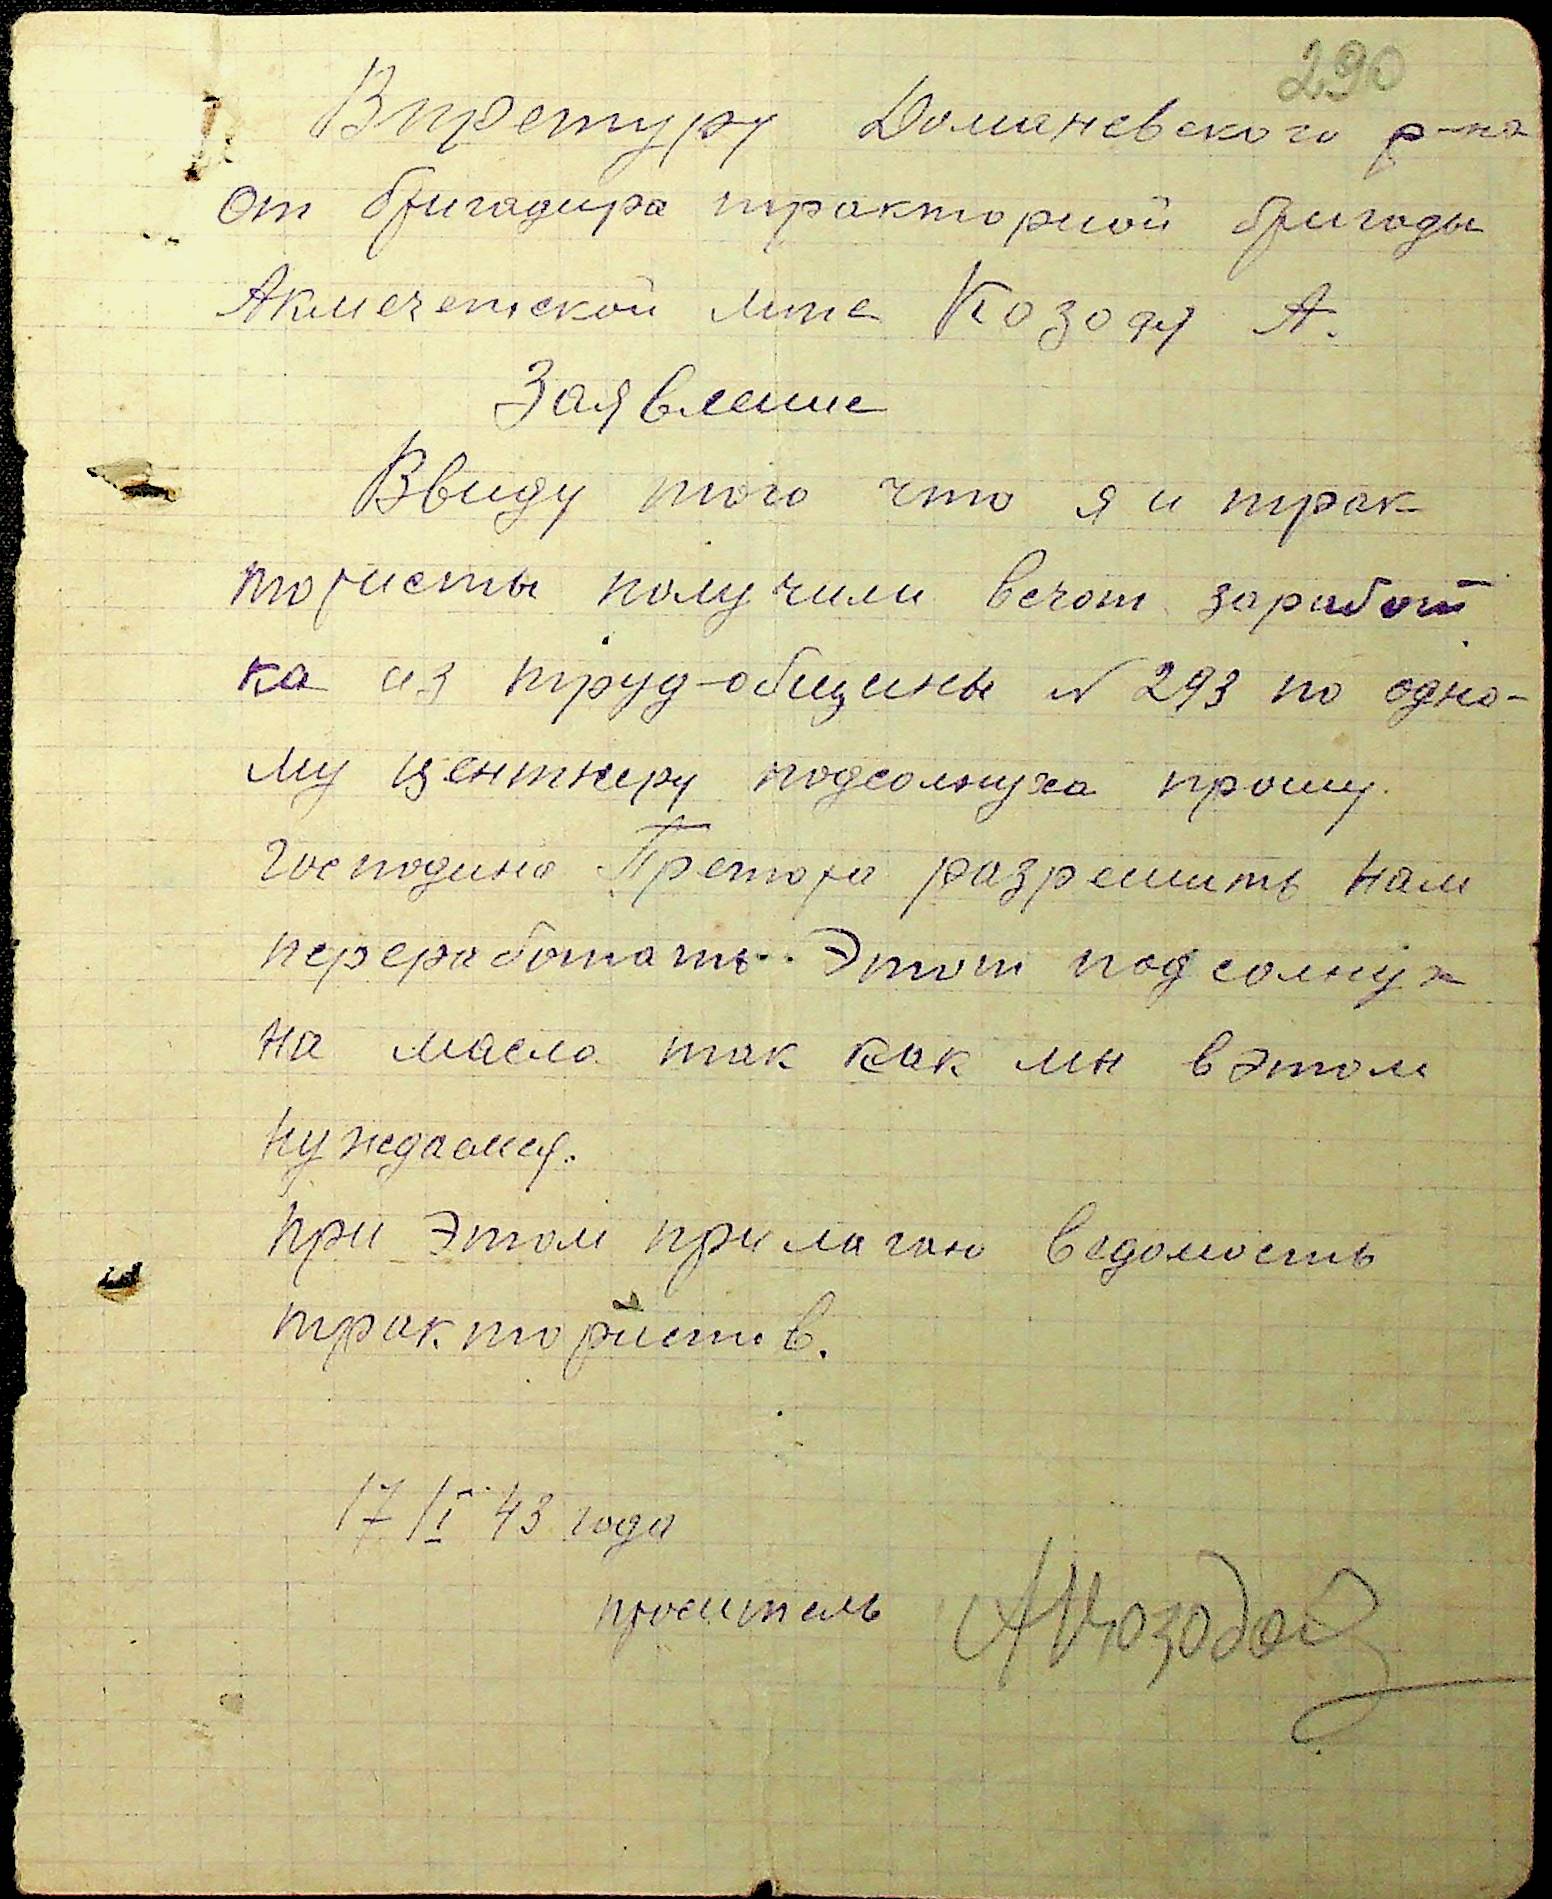 290
В претуру Доманевского р-на
От бригадира тракторной бригады
Акмечетской мтс А.
Заявление
Ввиду того что я и трак
тористы получили всчот заработ
ка из труд-общины № 293 по одно-
му центнеру подсолнуха прошу
господина Претора разрешить нам
переработать Этот подсолнух
на масло так как мы в этом
нуждаомся.
При Этом прилагаю ведомость
трактористов.
17/I 43 года
проситель А Козодой